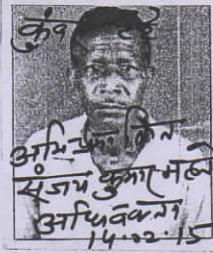 कुंवर
अभिप्रमाणित
संजय कुमार महतो
अधिवक्ता
14.02.15